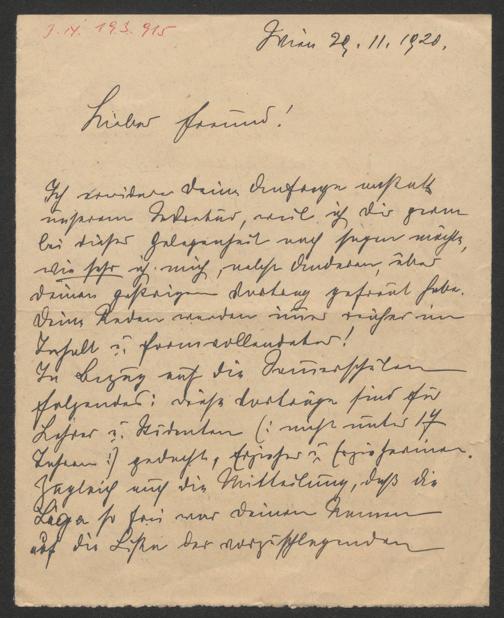 J.N. 193.915
Wien 29.11.1920.
Lieber Freund!
Ich erwidere Deine Anfrage anstatt
unserem Sekretär, weil ich Dir gern
bei dieser Gelegenheit noch sagen möchte,
wie sehr ich mich, nebst Anderen, über
Deinen gestrigen Vortrag gefreut habe.
Deine Reden werden immer reicher an
Inhalt u. formvollendeter!
In Bezug auf die Sommerschulen
folgendes: diese Vorträge sind für
Lehrer u. Studenten (: nicht unter 17
Jahren :) gedacht, Erzieher u. Erzieherinnen.
Zugleich auch die Mitteilung, daß die
Liga so frei war Deinen Namen
auf die Liste der vorzuschlagenden